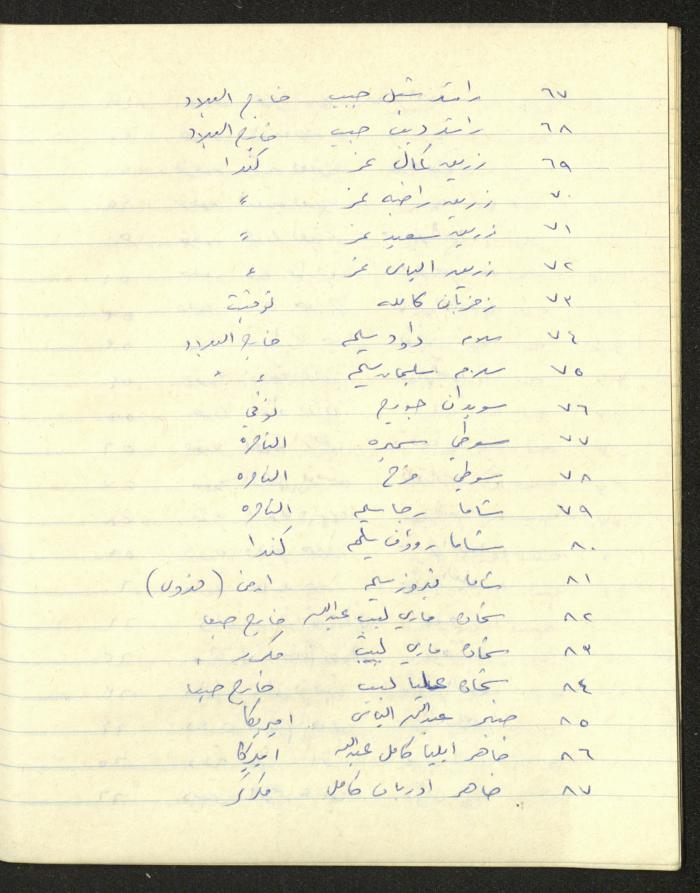 ٦٧ راشد شبل حبيب خارج البلاد
٦٨ راشد ديب حبيب خارج البلاد
٦٩ زريق كمال عمر كندا
٧٠ زريق راضيه عمر "
٧١ زريق سعيد عمر "
٧٢ زريق الياس عمر "
٧٣ كامله توفيت
٧٤ سلامه داود سليم خارج البلاد
٧٥ سلامه سليمان سليم " "
٧٦ سويدان جورج توفي
٧٧ سوطي سميره الناصره
٧٨ سوطي فرح الناصره
٧٩ شاما رجا سليم الناصره
٨٠ شاما رووف سليم كندا
٨١ شاما فيروز سليم
٨٢ شحاده ماري لبيب عبدالله خارج حيفا
٨٣ شحاده ماري لبيب مكرر
٨٤ شحاده عليا لبيب خارج حيفا
٨٥ عبدالله الياس اميركا
٨٦ ضاهر ايليا كامل عبدالله اميركا
٨٧ ضاهر كامل مكرر